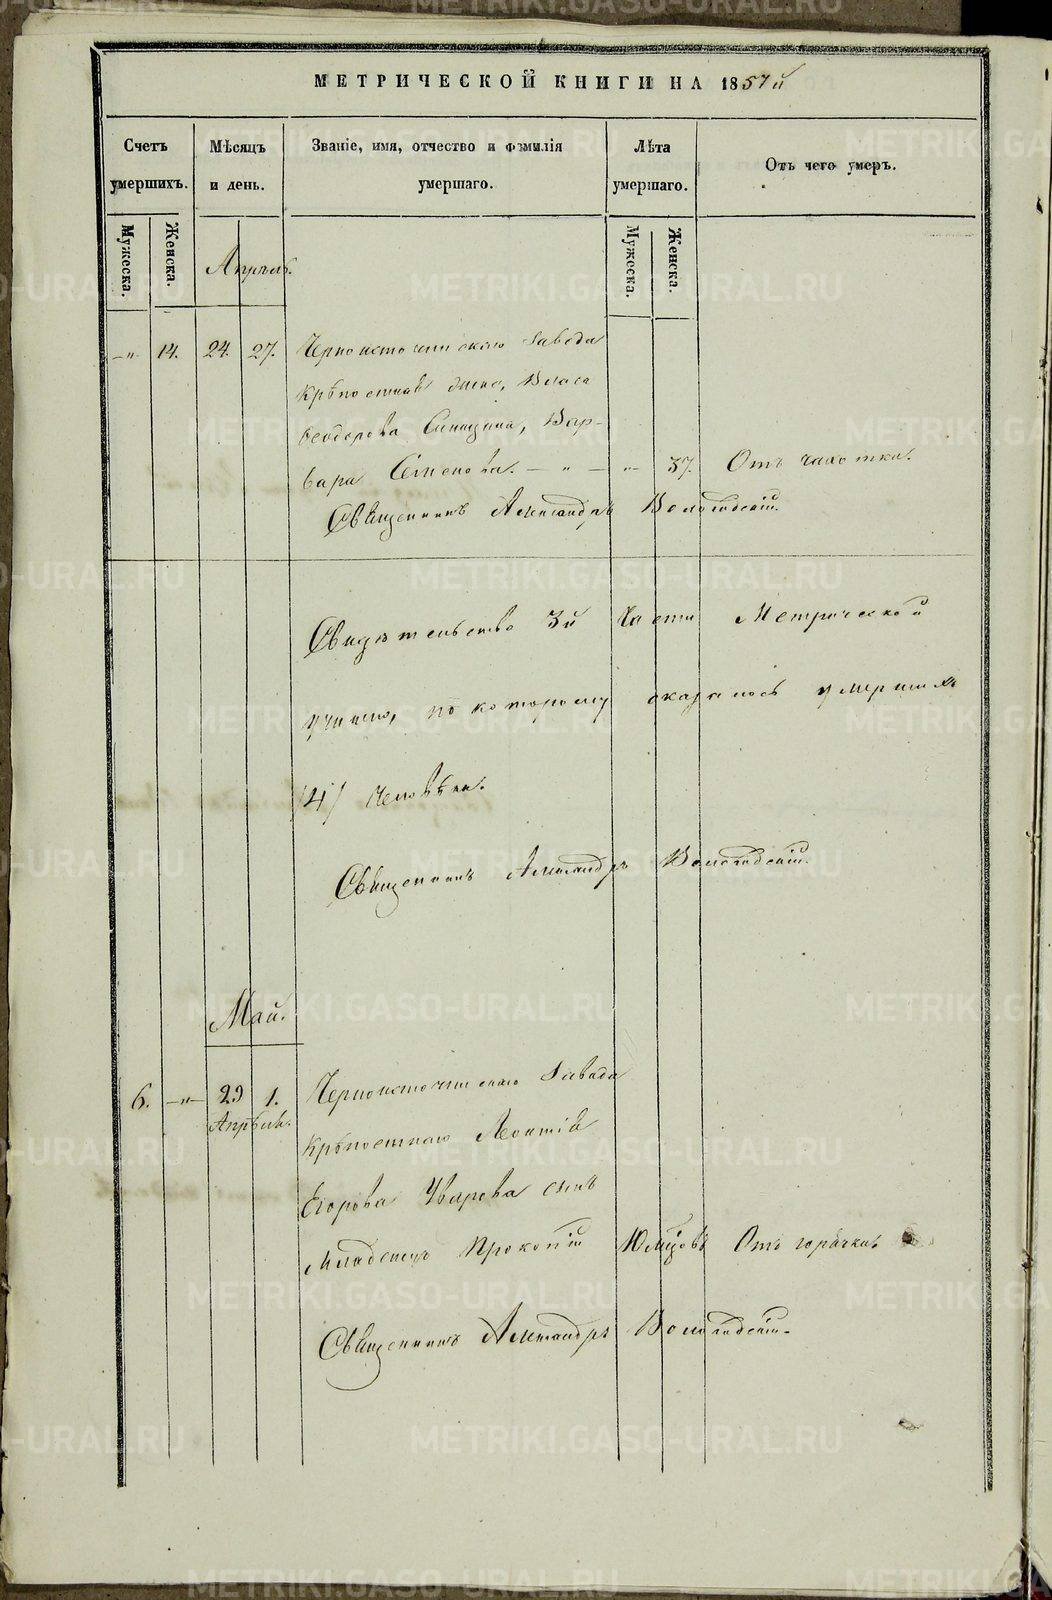 МЕТРИЧЕСКОЙ КНИГИ НА 1857й
Счетъ умершихъ.
Мѣсяцъ и день.
Званіе, имя, отчество и фамилія умершаго.
Лѣта умершаго.
Отъ чего умеръ.
Мужеска.
Женска.
Мужеска.
Женска.
Апрѣль.
—„— 14. 24. 27. Черноисточинскаго Завода
Крѣпостная жена, Власа
Ѳеодорова Синицина, Вар-
вара Семенова. — „ — „ — 37. Отъ чахотки.
Священникъ Александръ Вологодскій.
Свидѣтельство 3й Части Метрической
учинено, по которому оказалось умершихъ
/4/ человѣка.
Священникъ Александръ Вологодскій.
Май.
6. —„— 29 1. Черноисточинскаго Завода
Апрѣля.
Крѣпостнаго Леонтія
Егорова Уварова сынъ
Младенецъ Прокопій 10 мцовъ Отъ горячки.
Священникъ Александръ Вологодскій.
METRIKI.GASO-URAL.RU